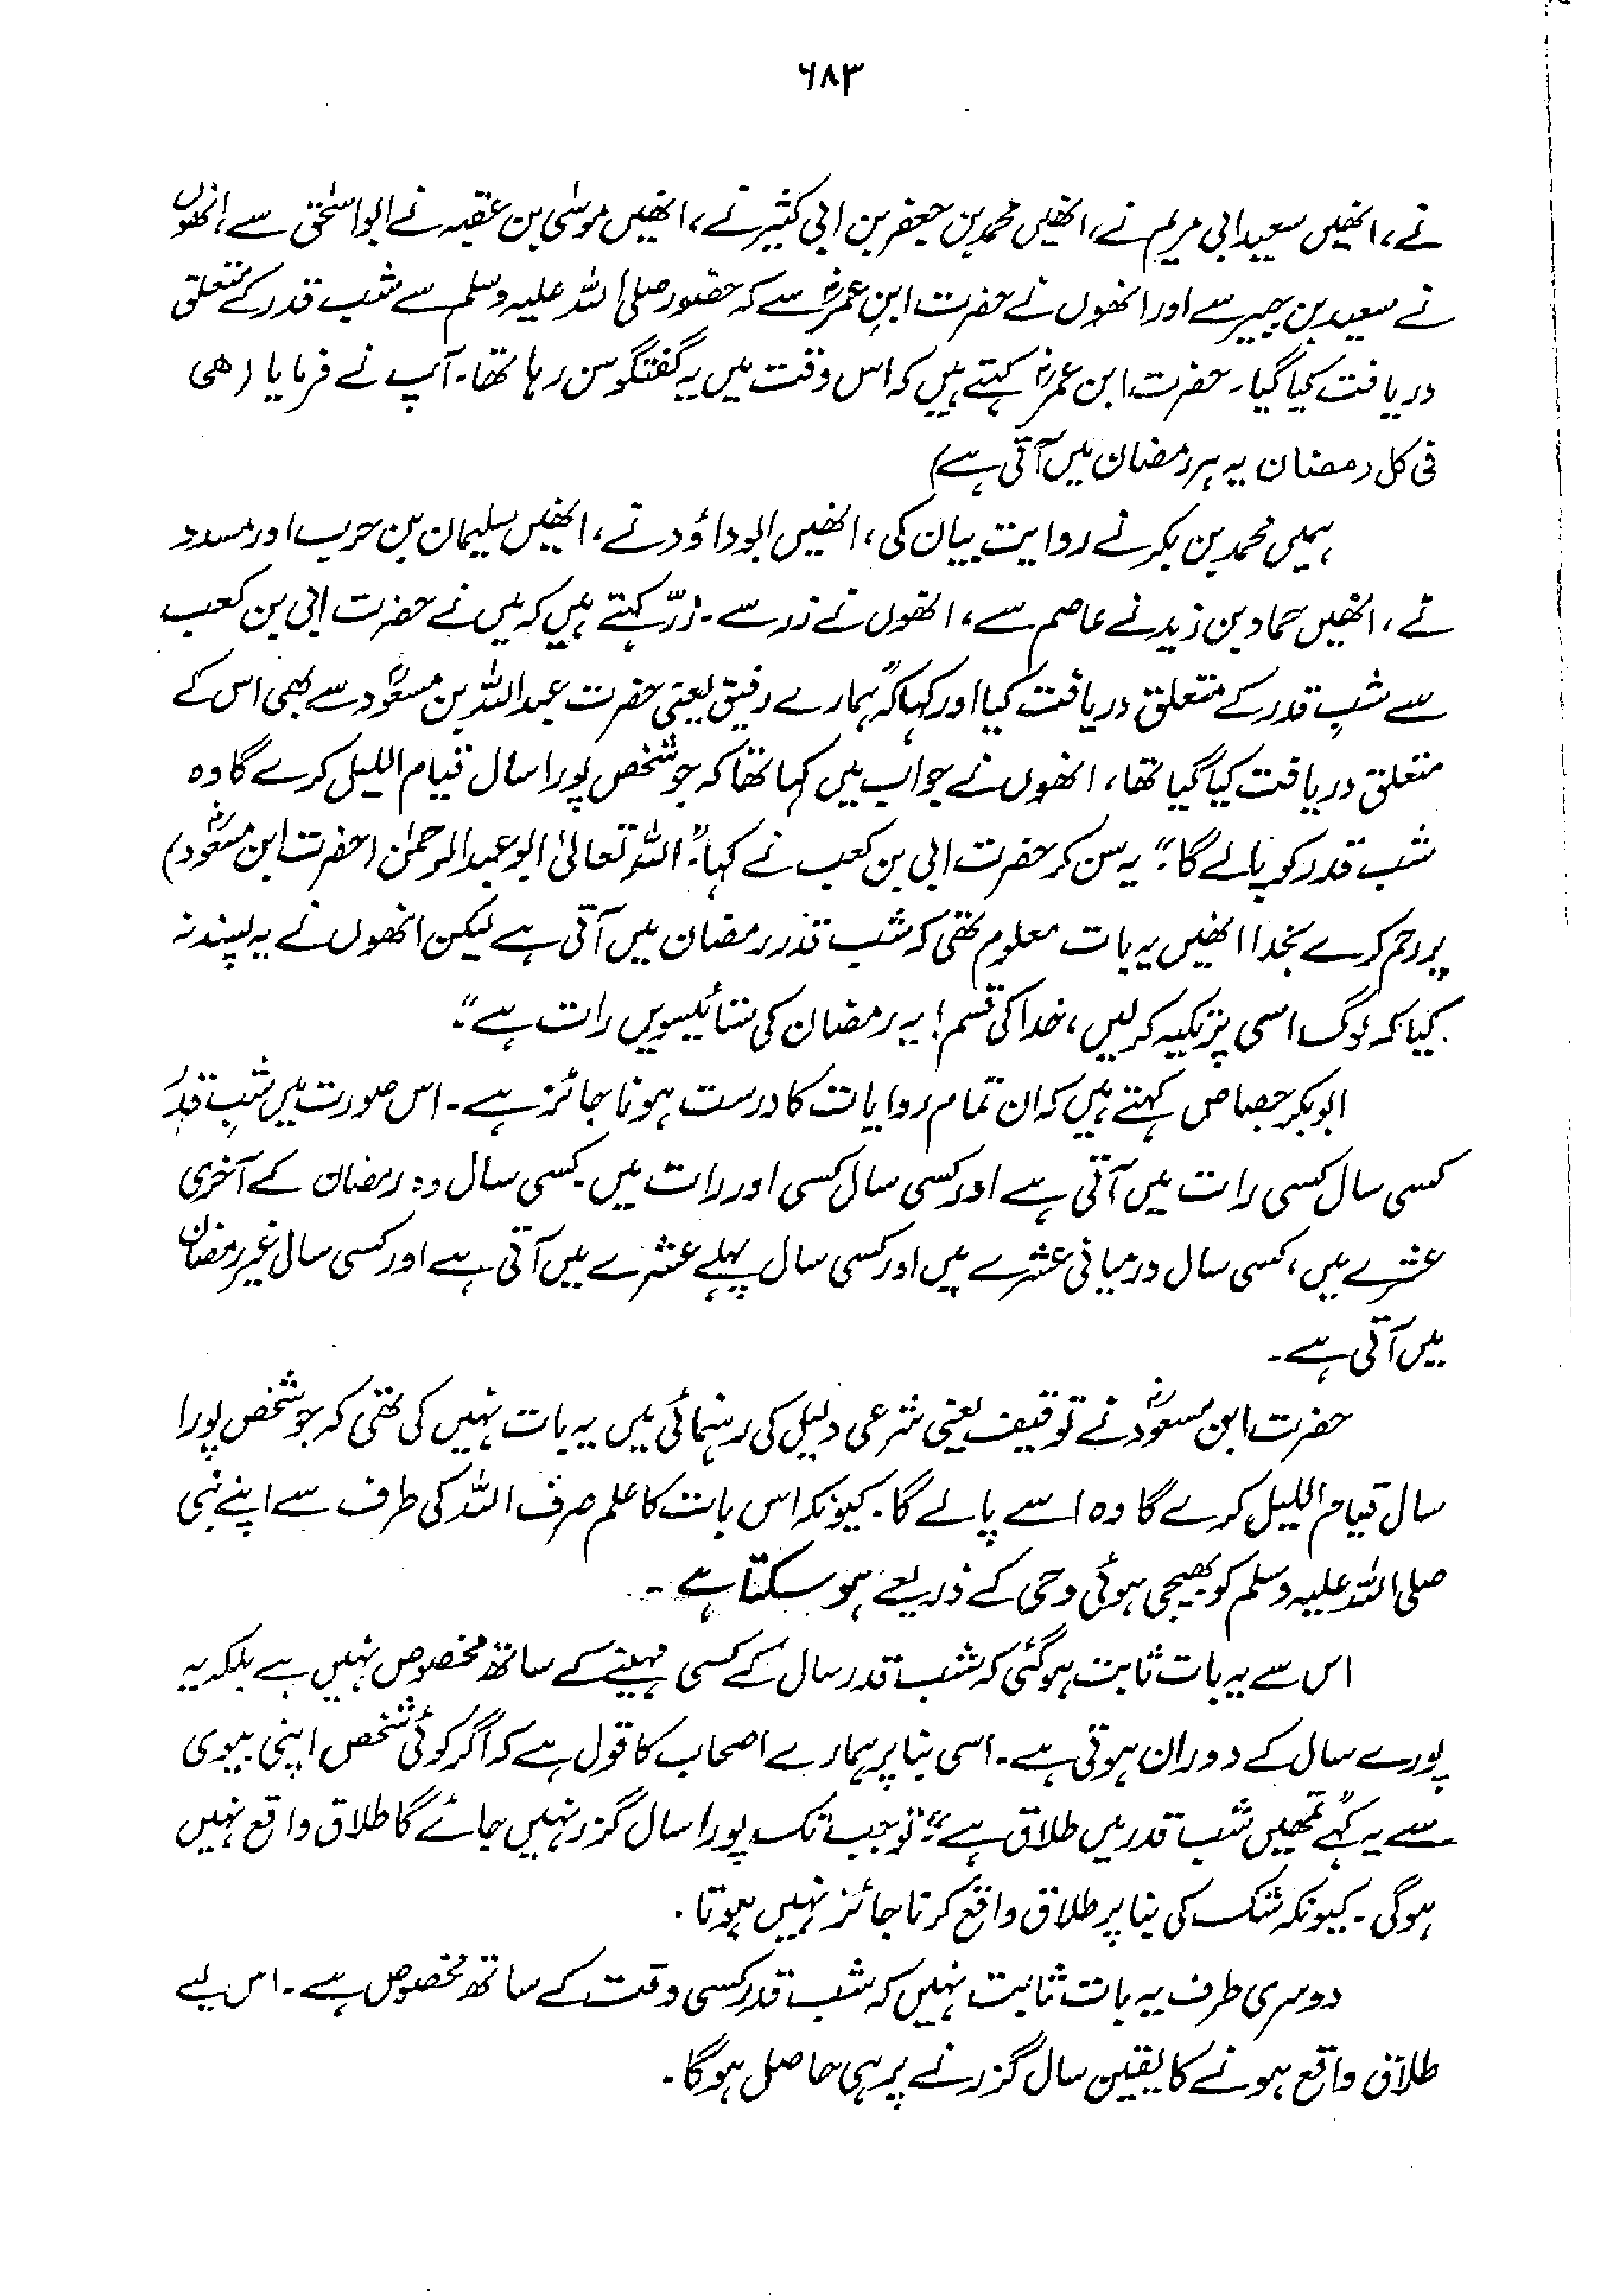 ۶۸۳
نے، انھیں سعید ابی مریم نے، انھیں محمد بن جعفر بن ابی کثیر نے، انھیں موسٰی بن عقبہ نے ابو اسحٰق سے، انھوں
نے سعید بن جبیر سے اور انھوں نے حضرت ابنِ عمرؓ سے کہ حضور صلی اللہ علیہ وسلم سے شب قدر کے متعلق
دریافت کیا گیا۔ حضرت ابن عمرؓ کہتے ہیں کہ اس وقت میں یہ گفتگو سن رہا تھا۔ آپ نے فرمایا (ھی
فی کل رمضان یہ ہر رمضان میں آتی ہے)
ہمیں محمد بن بکر نے روایت بیان کی، انھیں ابو داؤد نے، انھیں سلیمان بن حرب اور مسدد
نے، انھیں حماد بن زید نے عاصم سے، انھوں نے زر سے۔ زرّ کہتے ہیں کہ میں نے حضرت ابی بن کعب
سے شبِ قدر کے متعلق دریافت کیا اور کہا کہ "ہمارے رفیق یعنی حضرت عبداللہ بن مسعودؓ سے بھی اس کے
متعلق دریافت کیا گیا تھا، انھوں نے جواب میں کہا تھا کہ جو شخص پورا سال قیام اللیل کرے گا وہ
شب قدر کو پالے گا۔" یہ سن کر حضرت ابی بن کعب نے کہا۔ "اللہ تعالیٰ ابو عبدالرحمٰن (حضرت ابن مسعودؓ)
پر رحم کرے بخدا انھیں یہ بات معلوم تھی کہ شب قدر رمضان میں آتی ہے لیکن انھوں نے یہ پسند نہ
کیا کہ لوگ اسی پر تکیہ کر لیں، خدا کی قسم! یہ رمضان کی ستائیسویں رات ہے"۔
ابوبکر جصاص کہتے ہیں کہ ان تمام روایات کا درست ہونا جائز ہے۔ اس صورت میں شبِ قدر
کسی سال کسی رات میں آتی ہے اور کسی سال کسی اور رات میں۔ کسی سال وہ رمضان کے آخری
عشرے میں، کسی سال درمیانی عشرے میں اور کسی سال پہلے عشرے میں آتی ہے اور کسی سال غیر رمضان
میں آتی ہے۔
حضرت ابن مسعودؓ نے توقیف یعنی شرعی دلیل کی رہنمائی میں یہ بات نہیں کی تھی کہ جو شخص پورا
سال قیام اللیل کرے گا وہ اسے پالے گا۔ کیونکہ اس بات کا علم صرف اللہ کی طرف سے اپنے نبی
صلی اللہ علیہ وسلم کو بھیجی ہوئی وحی کے ذریعے ہو سکتا ہے۔
اس سے یہ بات ثابت ہو گئی کہ شب قدر سال کے کسی مہینے کے ساتھ مخصوص نہیں ہے بلکہ یہ
پورے سال کے دوران ہوتی ہے۔ اسی بنا پر ہمارے اصحاب کا قول ہے کہ اگر کوئی شخص اپنی بیوی
سے یہ کہے "تمھیں شب قدر میں طلاق ہے" تو جب تک پورا سال گزر نہیں جائے گا طلاق واقع نہیں
ہوگی۔ کیونکہ شک کی بنا پر طلاق واقع کرنا جائز نہیں ہوتا۔
دوسری طرف یہ بات ثابت نہیں کہ شب قدر کسی وقت کے ساتھ مخصوص ہے۔ اس لیے
طلاق واقع ہونے کا یقین سال گزرنے پر ہی حاصل ہوگا۔